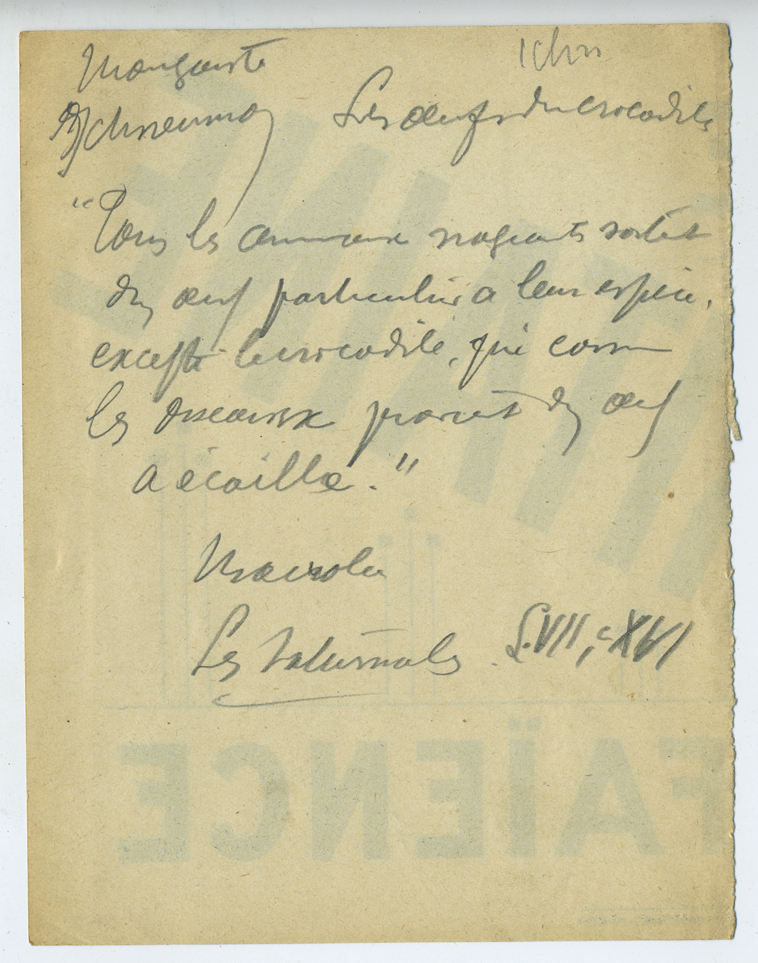 Mangouste
Ichn
Ichneumon
Les œufs du crocodile
"Tous les animaux nageants sortent
d'un œuf particulier à leur espèce,
excepté le crocodile, qui comme
les oiseaux provient d'un œuf
à écaille."
Macrobe
Les Saturnales. L. VII, c XVI
FAÏENCE